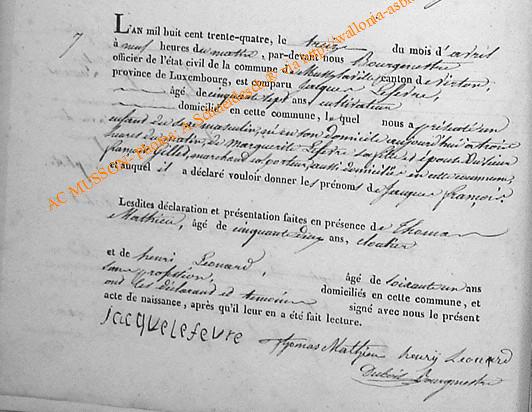 7
L'AN mil huit cent trente-quatre, le treize du mois d'avril
à neuf heures du matin, par-devant nous Bourgmestre
officier de l'état civil de la commune de canton de Virton,
province de Luxembourg, est comparu Jacque Lefevre,
âgé de cinquante sept ans, cultivateur
domicilié en cette commune, lequel nous a présenté un
enfant du sexe masculin, né en son domicile aujourd'hui à trois
heures du matin, de Marguerite Lefevre sa fille et épouse
françois Gillet, marchand colporteur, aussi domiciliés en cette commune,
et auquel il a déclaré vouloir donner les prénoms de Jacque françois.
Lesdites déclaration et présentation faites en présence de Thomas
Mathieu, âgé de cinquante ans, cloutier
et de henri Leonard, âgé de soixante un ans
sans profession, domiciliés en cette commune, et
ont les déclarant et temoins signé avec nous le présent
acte de naissance, après qu'il leur en a été fait lecture.
jacquelefevre
Thomas Mathieu henry Leonard
Dubois Bourgmestre
AC MUSSON- Photo: A. Schaeldesch © via http://wallonia-asb